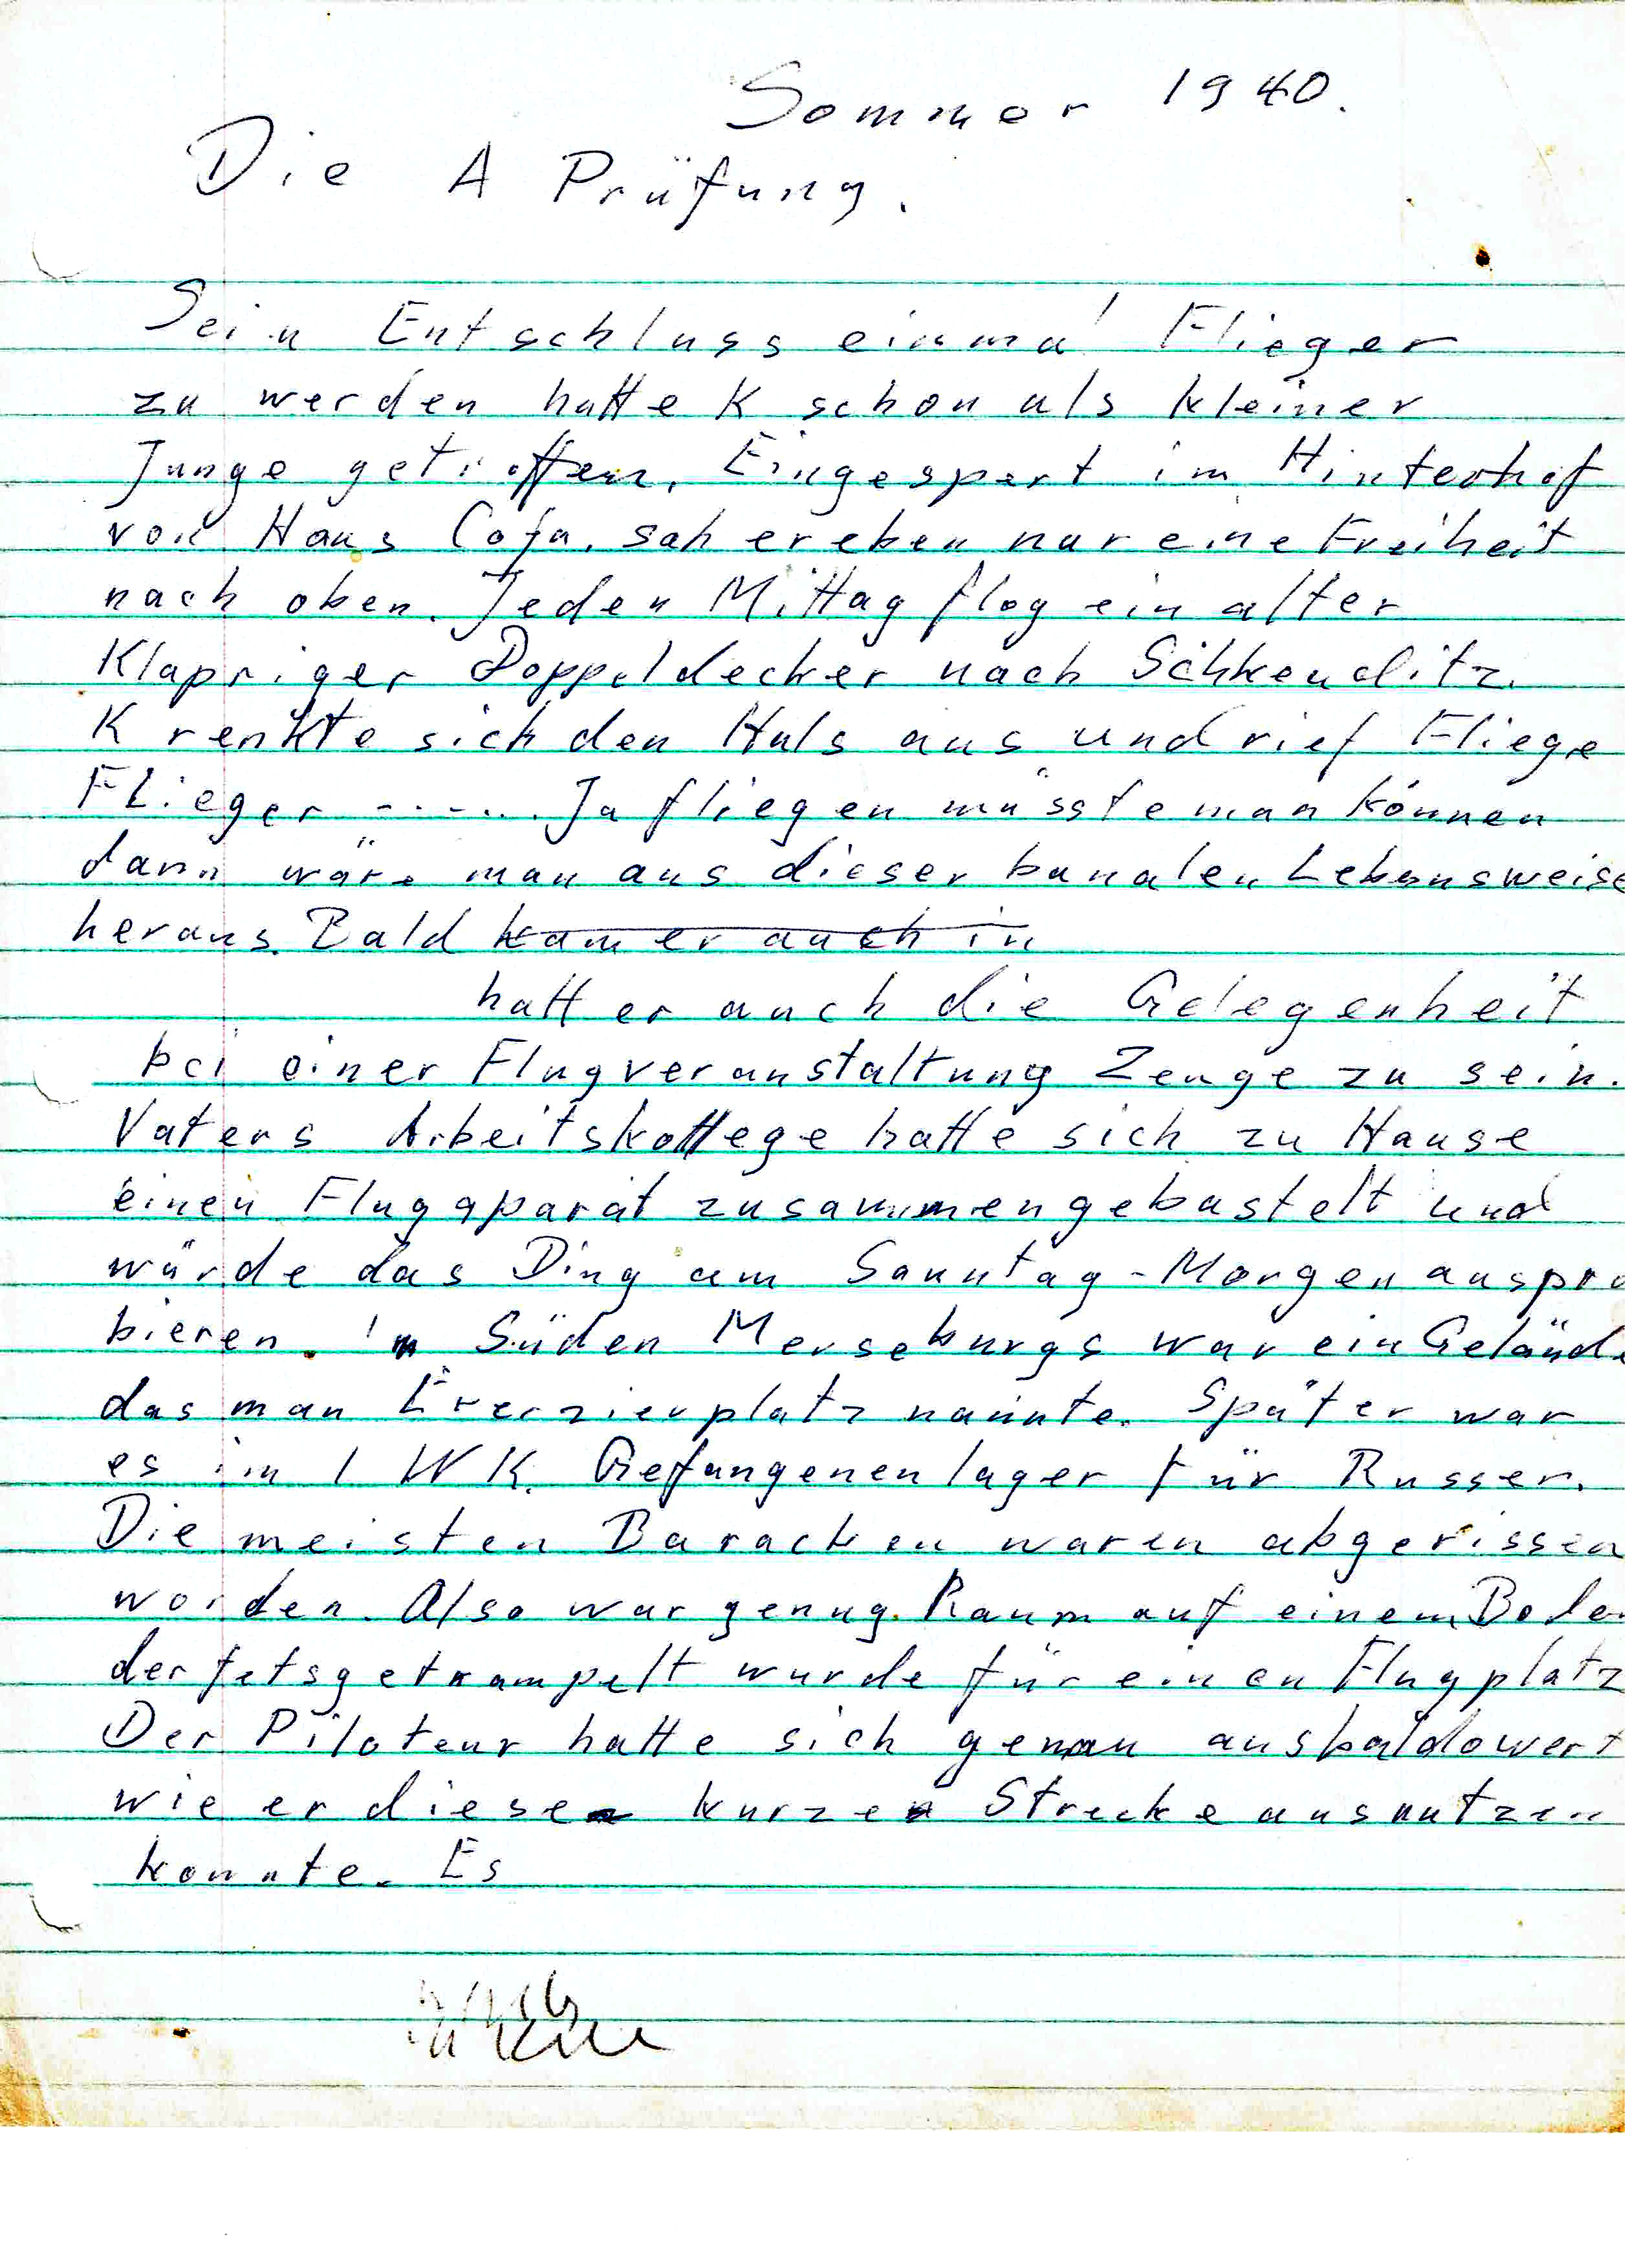 Sommer 1940.
Die A Prüfung.
Sein Entschluss einmal Flieger
zu werden hatte K schon als kleiner
Junge getroffen. Eingespert im Hinterhof
von Haus Cofa. sah er eben nur eine Freiheit
nach oben. Jeden Mittag flog ein alter
Klapriger Doppeldecker nach Schkeuditz.
K renkte sich den Hals aus und rief Fliege
Flieger ----... Ja fliegen müsste man können
dann wäre man aus dieser banalen Lebensweise
heraus. Bald kam er auch in
hatt er auch die Gelegenheit
bei einer Flugveranstaltung Zeuge zu sein.
Vaters Arbeitskollege hatte sich zu Hause
einen Flugaparat zusammengebastelt und
würde das Ding am Sonntag-Morgen auspro
bieren. Im Süden Merseburgs war ein Gelände
das man Exerzierplatz nannte. Später war
es im 1 WK. Gefangenenlager für Russen.
Die meisten Baracken waren abgerissen
worden. Also war genug Raum auf einem Boden
der fetsgetrampelt wurde für einen Flugplatz
Der Piloteur hatte sich genau ausbaldowert
wie er diese kurze Strecke ausnutzen
konnte. Es